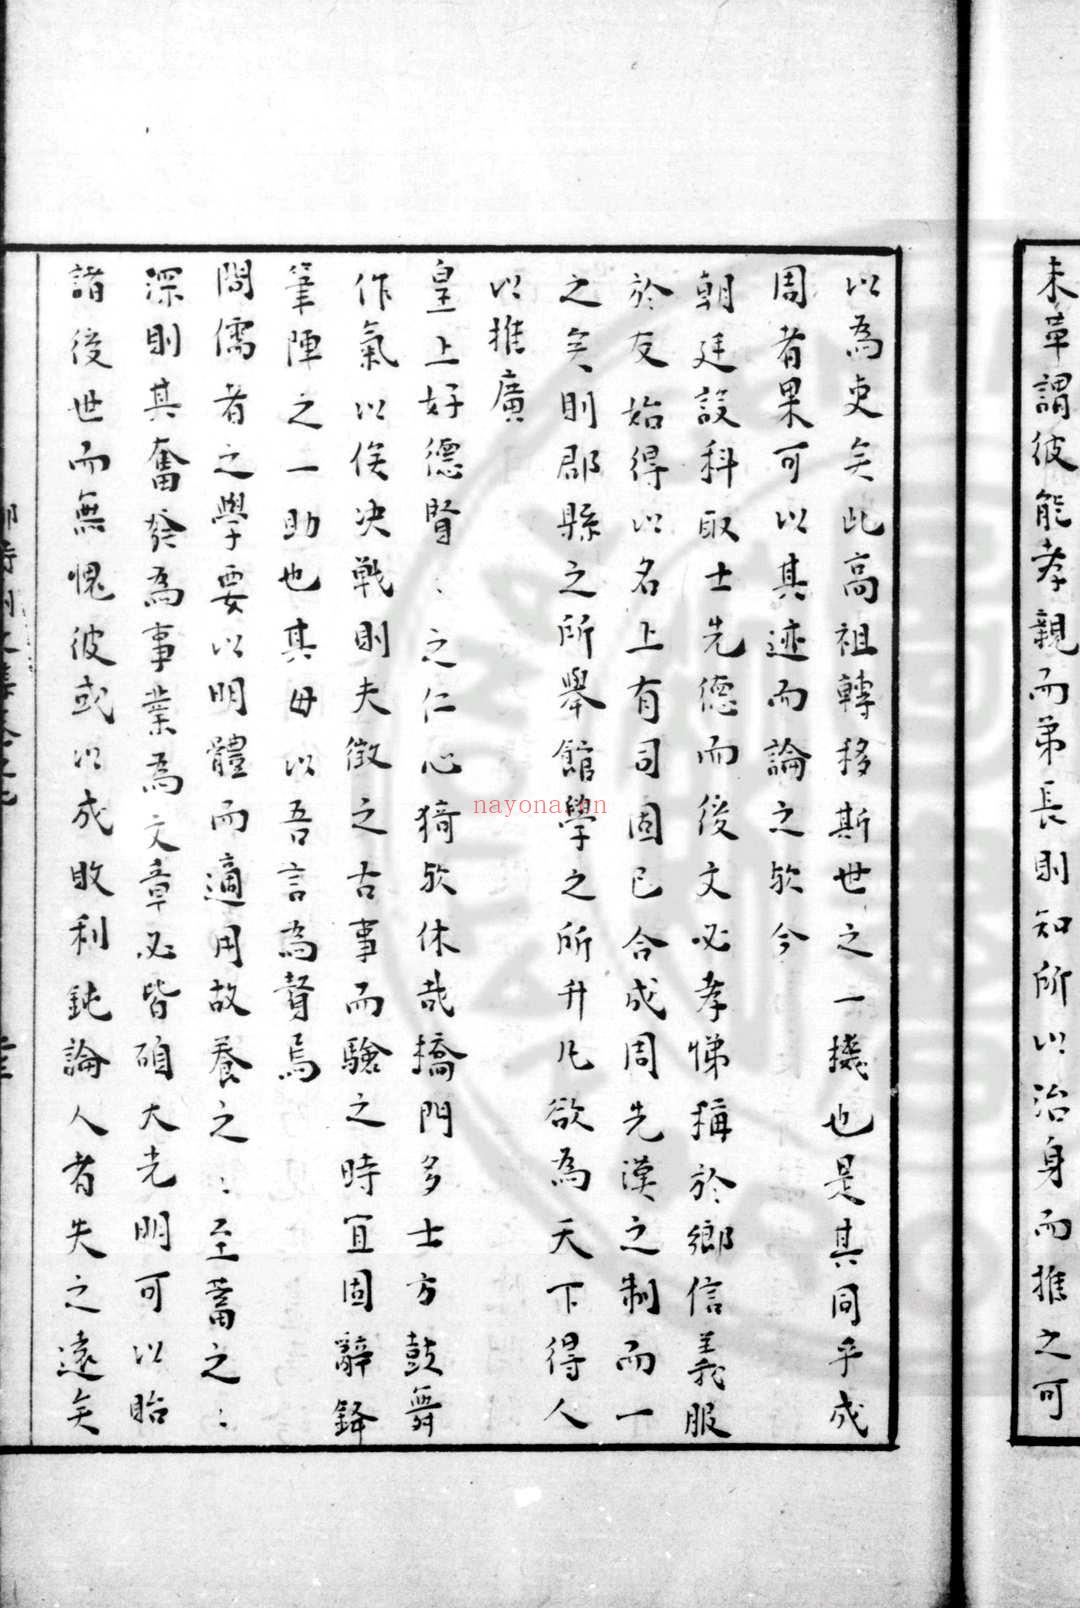 未革謂彼能孝親而弟長則知所以治身而推之可
以為吏矣此高祖轉移斯世之一機也是其同乎成
周者果可以其迹而論之欤今
朝廷設科取士先德而後文必孝悌稱於鄉信義服
於友始得以名上有司固已合成周先漢之制而一
之矣則郡縣之所舉館學之所升凡欲為天下得人
以推廣
皇上好德賢〻之仁心猗欤休哉橋門多士方鼓舞
作氣以俟決戰則夫徵之古事而驗之時宜固辭鋒
筆陣之一助也其毋以吾言為贅焉
問儒者之學要以明體而適用故養之〻至蓄之〻
深則其奮發為事業為文章必皆碩大光明可以貽
諸後世而無愧彼或以成敗利鈍論人者失之遠矣
nayona.cn